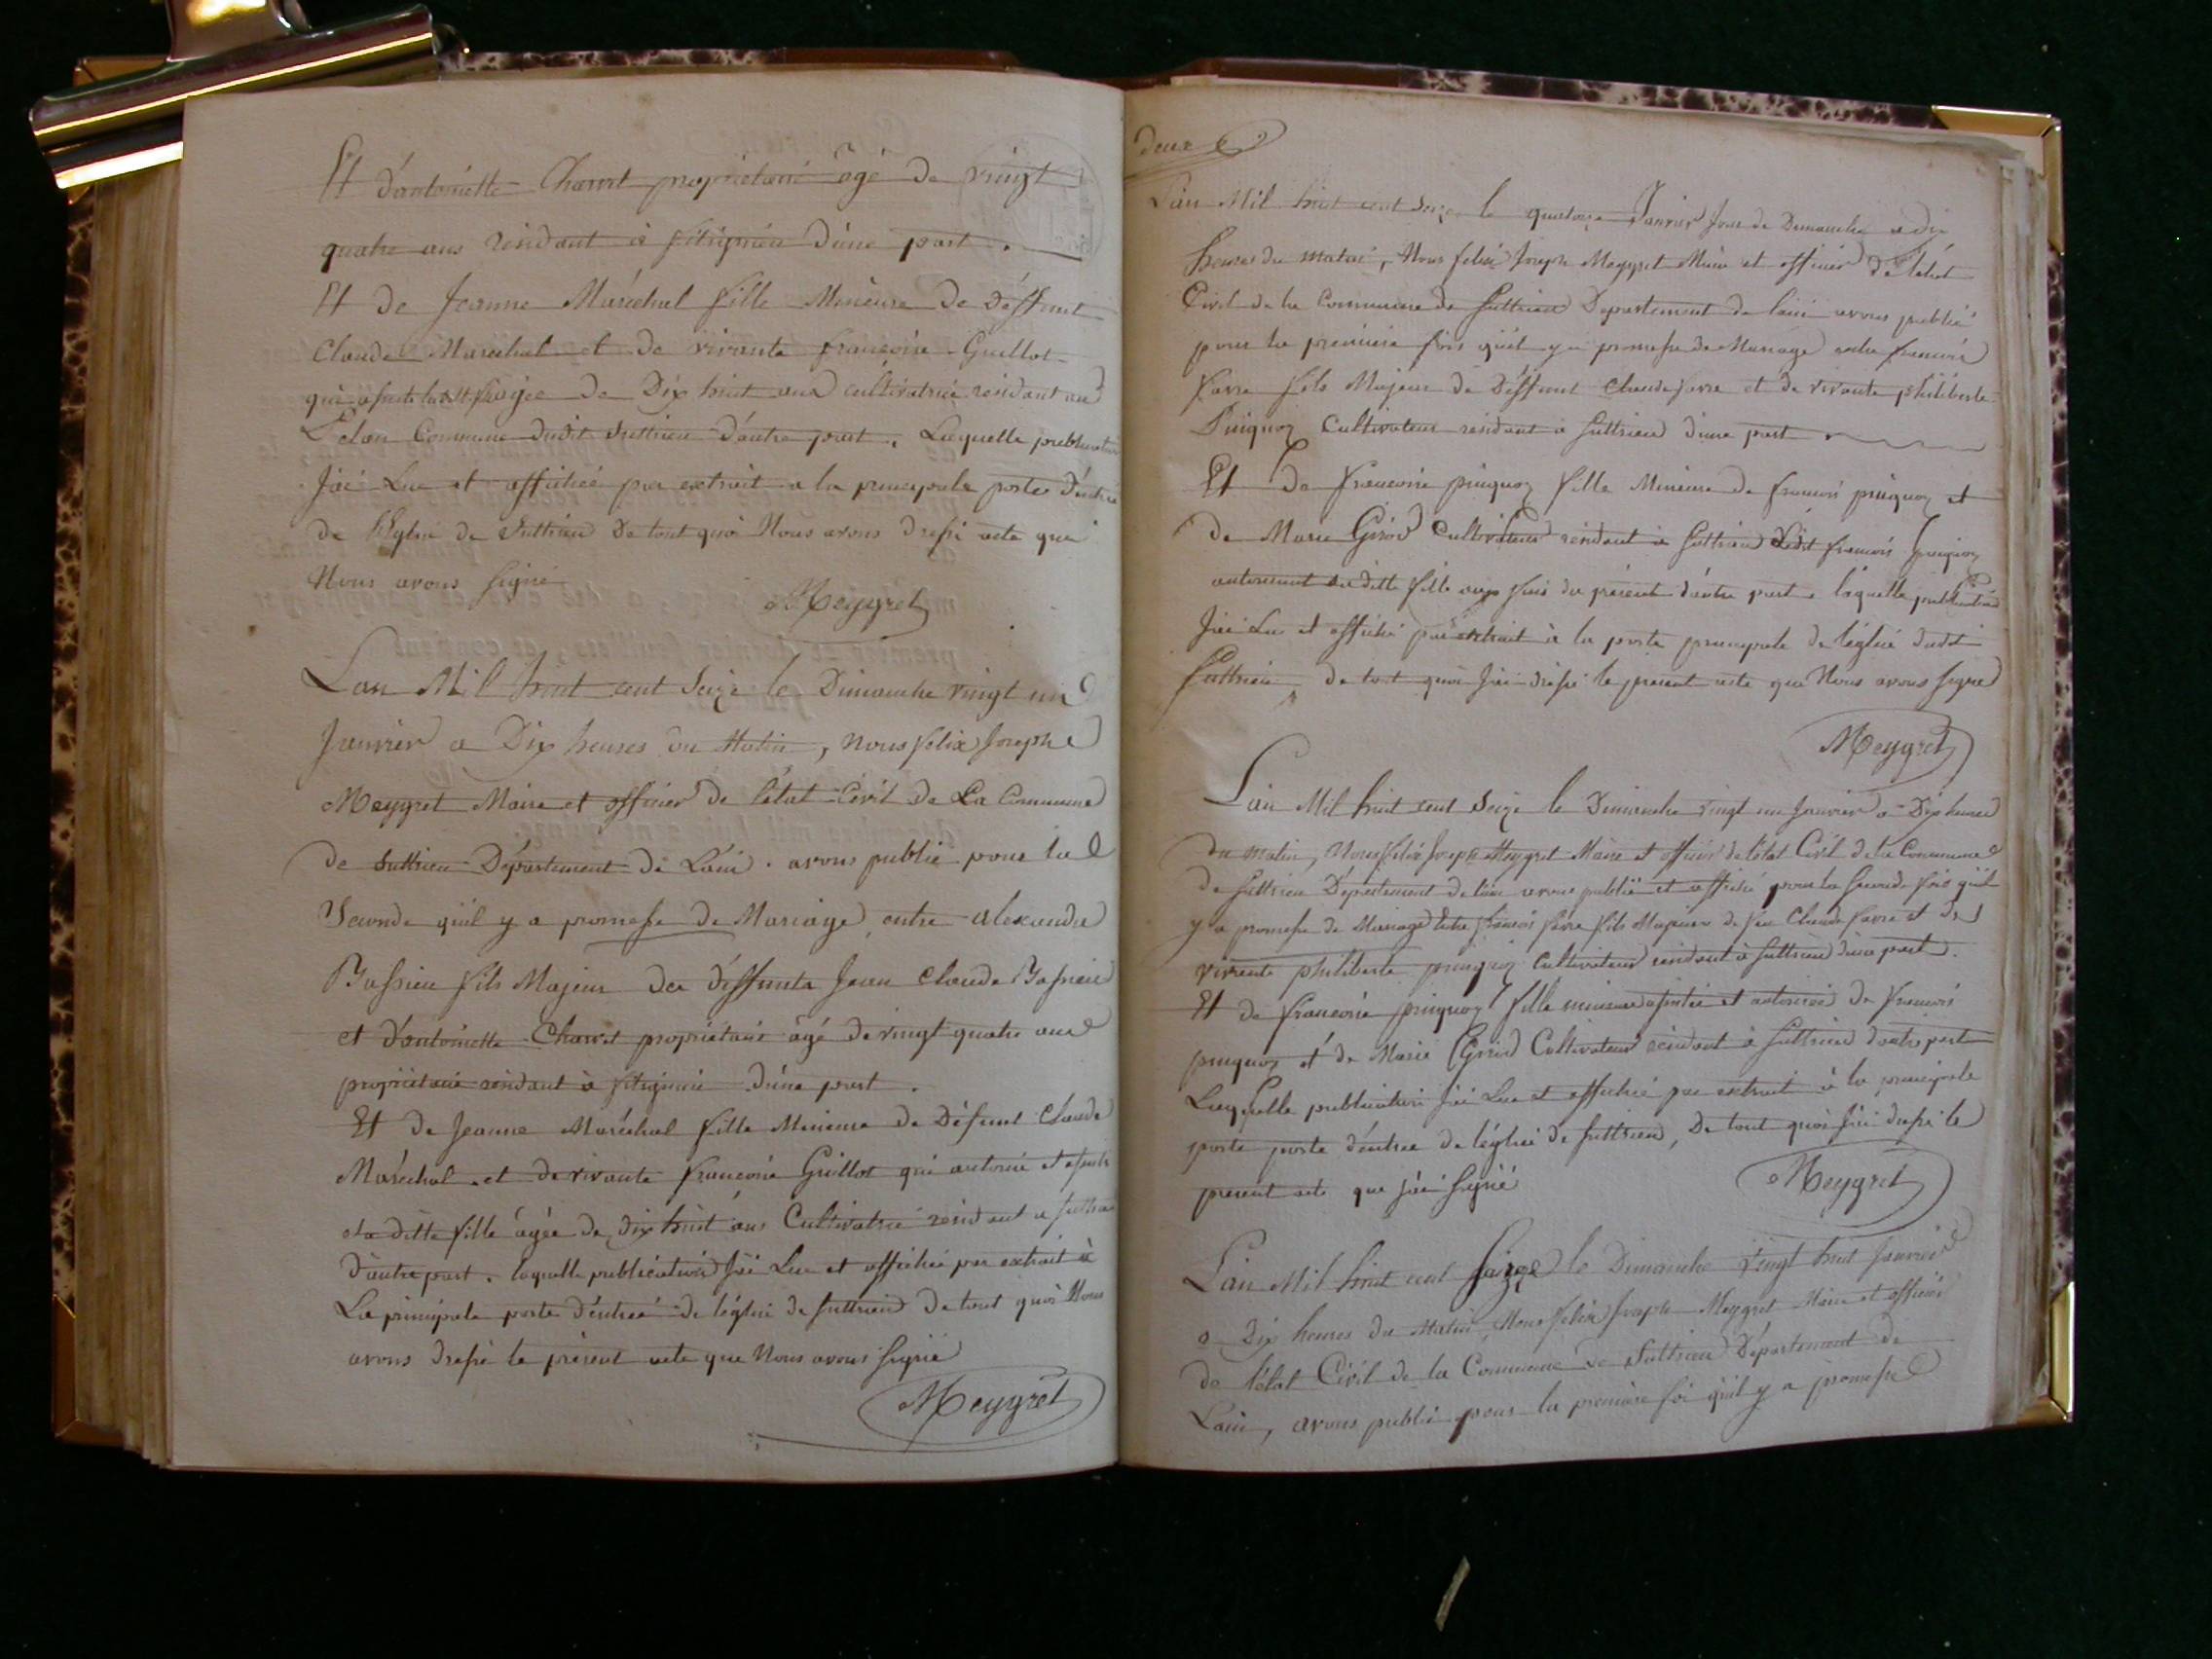 Et d'antoinette Charvet propriétaire âgé de vingt
quatre ans résidant à fitignieu d'une part.
Et de Jeanne Maréchal fille Mineure de Déffunt
Claude Maréchal et de vivante françoise Guillot
qui âgée de Dix huit ans cultivatrice résidant au
Commune dudit Suttrieu d'autre part. Laquelle publication
J'ai Lue et affichée par extrait a la principale porte d'entrée
de l'Eglise de Suttrieu De tout quoi Nous avons dressé acte que
Nous avons signé
Meygret
L'an Mil huit cent Seize le Dimanche vingt un
Janvier a Dix heures du Matin, Nous felix Joseph
Meygret Maire et officier de l'état Civil de La Commune
de Suttrieu Département de L'ain. avons publié pour la
Seconde qu'il y a promesse de Mariage entre alexandre
Bassieu fils Majeur des déffunts Jean Claude Bassieu
et d'antoinette Charvet propriétaire âgé de vingt quatre ans
propriétaire résidant à fitignieu d'une part.
Et de Jeanne Maréchal fille Mineure de Défunt Claude
Maréchal et de vivante françoise Guillot qui autorise et assiste
sa ditte fille âgée de dix huit ans Cultivatrice résidant a Suttrieu
d'autre part. laquelle publication J'ai Lue et affichée par extrait à
La principale porte d'entrée de l'église de Suttrieu De tout quoi Nous
avons dressé le présent acte que Nous avons signé
Meygret
deux
L'an Mil huit cent Seize le quatorze Janvier Jour de Dimanche a dix
heures du matin, Nous felix Joseph Meygret Maire et officier de l'état
Civil de la Commune de Suttrieu Département de l'ain avons publié
pour la première fois qu'il y a promesse de Mariage entre francois
favre fils Majeur de Déffunt Claude favre et de vivante philiberte
Pinquoz Cultivateur résidant à Suttrieu d'une part.
Et de francoise pinquoz fille Mineure de francois pinquoz et
de Marie Girod Cultivateur résidant à Suttrieu Ledit francois pinquoz
autorisant sa ditte fille aux fins du présent d'autre part. laquelle publication
J'ai Lu et affiché par extrait à la porte principale de l'église dudit
Suttrieu, de tout quoi J'ai dressé le présent acte que Nous avons signé
Meygret
L'an Mil huit cent Seize le Dimanche vingt un Janvier a Dix heures
du matin, Nous felix Joseph Meygret Maire et officier de l'état Civil de la Commune
de Suttrieu Département de l'ain avons publié et affiché pour la Seconde fois qu'il
y a promesse de Mariage Entre francois favre fils Majeur de feu Claude favre et de
vivante philiberte pinquoz Cultivateur résidant à Suttrieu d'une part.
Et de francoise pinquoz fille mineure assistée et autorisée de francois
pinquoz et de Marie Girod Cultivateur résidant à Suttrieu d'autre part
Laquelle publication J'ai Lue et affichée par extrait à la principale
porte porte d'entrée de l'église de Suttrieu, De tout quoi J'ai dressé le
présent acte que j'ai Signé
Meygret
L'an Mil huit cent Seize le Dimanche vingt huit Janvier
a Dix heures du Matin, Nous felix Joseph Meygret Maire et officier
de l'état Civil de la Commune de Suttrieu Département de
L'ain, avons publié pour la première foi qu'il y a promesse